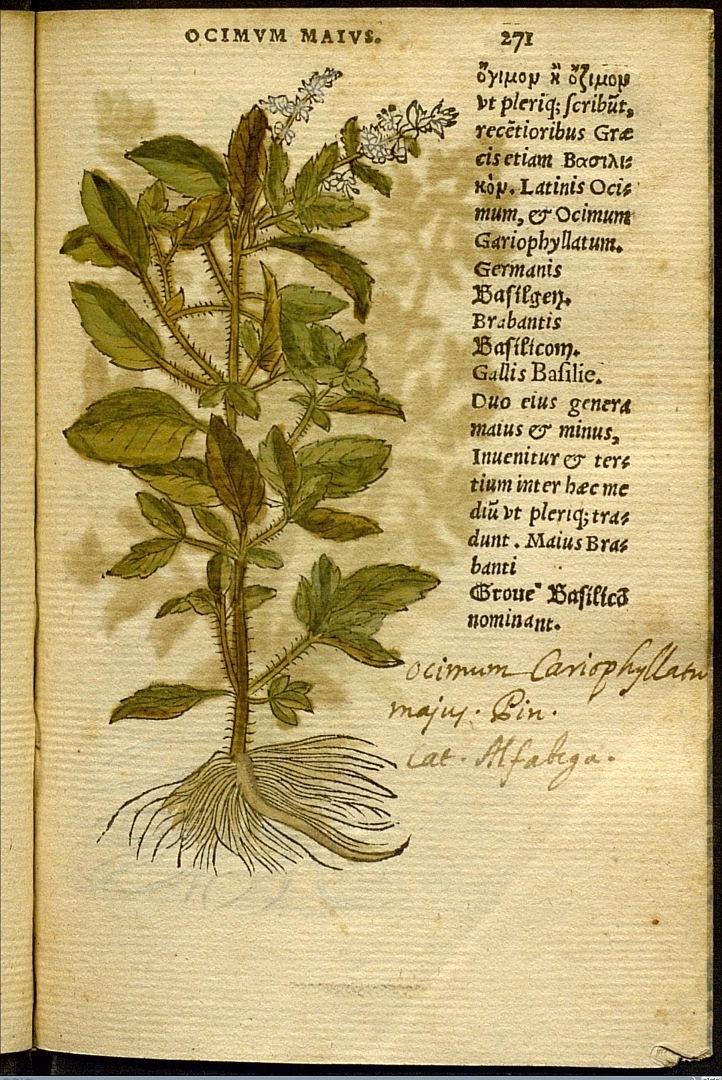 OCIMVM MAIVS. 271
ὄγιμον ἢ ὄζιμον
vt pleriq; ſcribūt,
recētioribus Græ
cis etiam Βασιλι-
κὸν. Latinis Oci-
mum, & Ocimum
Gariophyllatum.
Germanis
Baſilgen.
Brabantis
Baſilicom.
Gallis Baſilic.
Duo eius genera
maius & minus,
Inuenitur & ter-
tium inter hæc me
diū vt pleriq; tra-
dunt. Maius Bra-
banti
Groue Baſilicō
nominant.
ocimum Cariophyllatū
majus. Pin.
Cat. Alfabega.